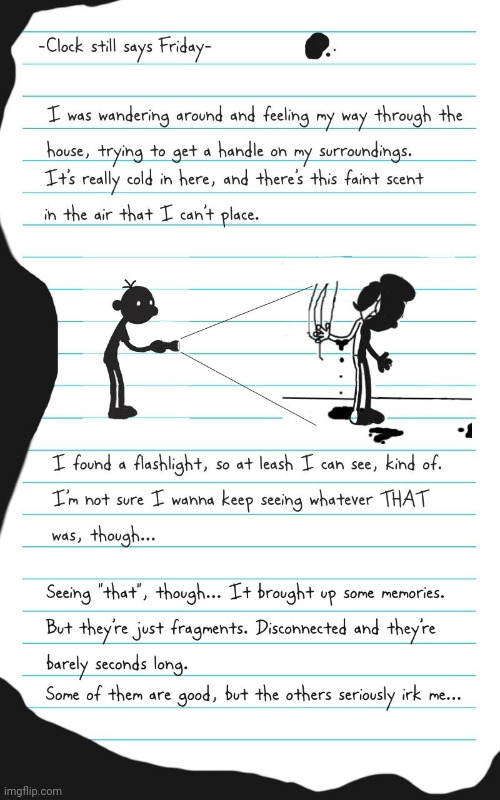 -Clock still says Friday-
I was wandering around and feeling my way through the
house, trying to get a handle on my surroundings.
It's really cold in here, and there's this faint scent
in the air that I can't place.
I found a flashlight, so at leash I can see, kind of.
I'm not sure I wanna keep seeing whatever THAT
was, though...
Seeing "that", though... It brought up some memories.
But they're just fragments. Disconnected and they're
barely seconds long.
Some of them are good, but the others seriously irk me...
imgflip.com